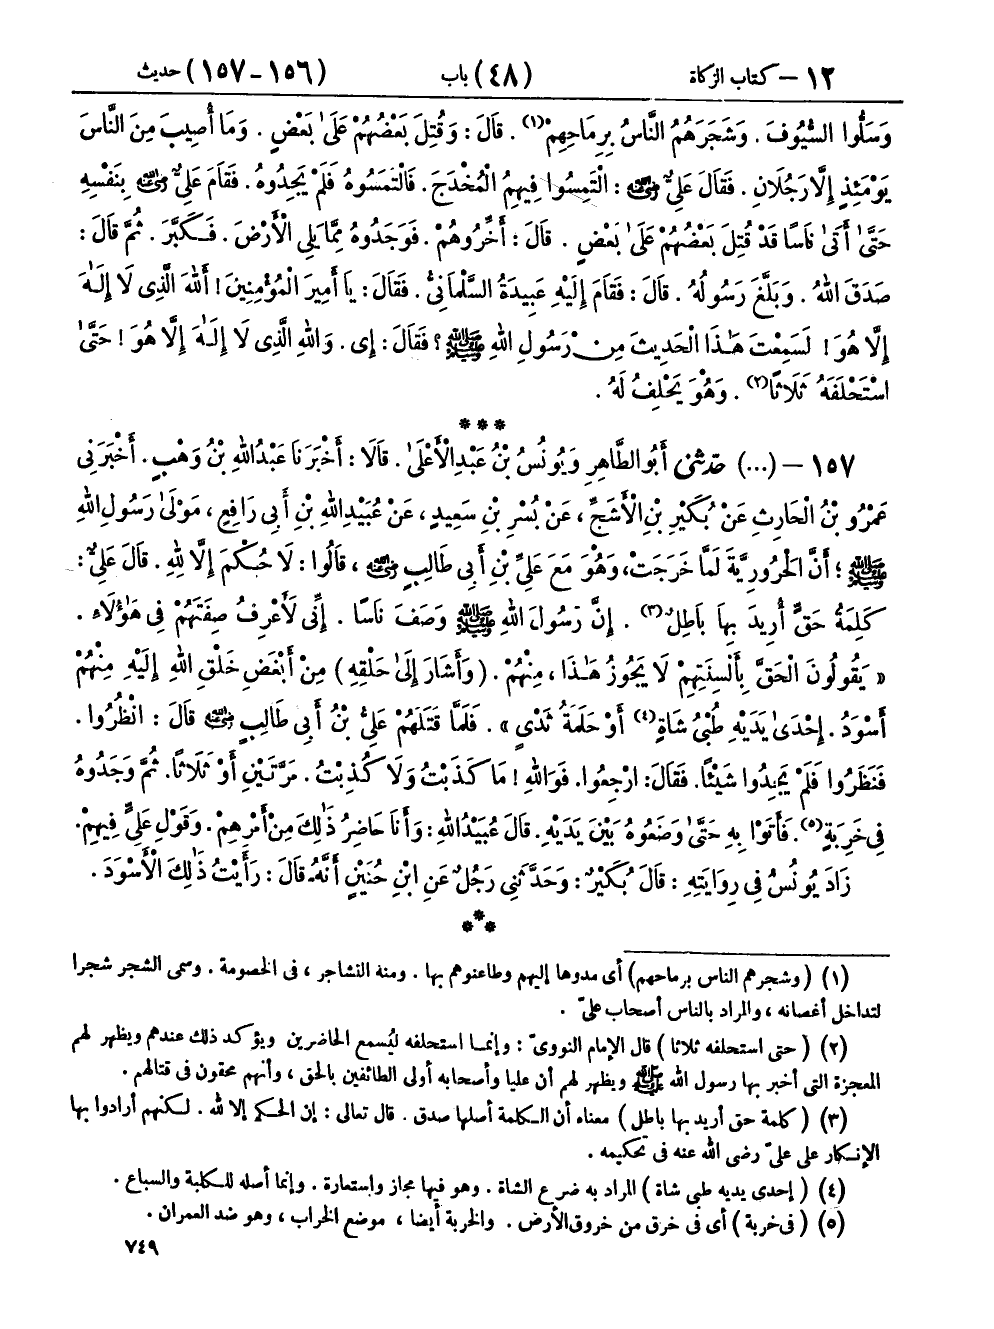 ١٢ – كتاب الزكاة (٤٨) باب (١٥٦-١٥٧) حديث
وَسَلُّوا السُّيُوفَ . وَشَجَرَهُمُ النَّاسُ بِرِمَاحِهِمْ(١) . قَالَ : وَقُتِلَ بَعْضُهُمْ عَلَىٰ بَعْضٍ . وَمَا أُصِيبَ مِنَ النَّاسِ
يَوْمَئِذٍ إِلَّا رَجُلَانِ . فَقَالَ عَلِيٌّ رضي الله عنه : الْتَمِسُوا فِيهِمُ الْمُخْدَجَ . فَالْتَمَسُوهُ فَلَمْ يَجِدُوهُ . فَقَامَ عَلِيٌّ رضي الله عنه بِنَفْسِهِ
حَتَّىٰ أَتَىٰ نَاسًا قَدْ قُتِلَ بَعْضُهُمْ عَلَىٰ بَعْضٍ . قَالَ : أَخِّرُوهُمْ . فَوَجَدُوهُ مِمَّا يَلِي الْأَرْضَ . فَكَبَّرَ . ثُمَّ قَالَ :
صَدَقَ اللهُ . وَبَلَّغَ رَسُولُهُ . قَالَ : فَقَامَ إِلَيْهِ عَبِيدَةُ السَّلْمَانِيُّ . فَقَالَ : يَا أَمِيرَ الْمُؤْمِنِينَ ! أَللهَ الَّذِي لَا إِلَـٰهَ
إِلَّا هُوَ ! لَسَمِعْتَ هَـٰذَا الْحَدِيثَ مِنْ رَسُولِ اللهِ ﷺ ؟ فَقَالَ : إِي . وَاللهِ الَّذِي لَا إِلَـٰهَ إِلَّا هُوَ ! حَتَّىٰ
اسْتَحْلَفَهُ ثَلَاثًا(٢) . وَهُوَ يَحْلِفُ لَهُ .
***
١٥٧ – (...) حدثني أَبُو الطَّاهِرِ وَيُونُسُ بْنُ عَبْدِ الْأَعْلَىٰ . قَالَا : أَخْبَرَنَا عَبْدُ اللهِ بْنُ وَهْبٍ . أَخْبَرَنِي
عَمْرُو بْنُ الْحَارِثِ عَنْ بُكَيْرِ بْنِ الْأَشَجِّ ، عَنْ بُسْرِ بْنِ سَعِيدٍ ، عَنْ عُبَيْدِ اللهِ بْنِ أَبِي رَافِعٍ ، مَوْلَىٰ رَسُولِ اللهِ
ﷺ ؛ أَنَّ الْحَرُورِيَّةَ لَمَّا خَرَجَتْ ، وَهُوَ مَعَ عَلِيِّ بْنِ أَبِي طَالِبٍ رضي الله عنه ، قَالُوا : لَا حُكْمَ إِلَّا لِلهِ . قَالَ عَلِيٌّ :
كَلِمَةُ حَقٍّ أُرِيدَ بِهَا بَاطِلٌ(٣) . إِنَّ رَسُولَ اللهِ ﷺ وَصَفَ نَاسًا . إِنِّي لَأَعْرِفُ صِفَتَهُمْ فِي هَؤُلَاءِ .
« يَقُولُونَ الْحَقَّ بِأَلْسِنَتِهِمْ لَا يَجُوزُ هَـٰذَا ، مِنْهُمْ . ( وَأَشَارَ إِلَىٰ حَلْقِهِ ) مِنْ أَبْغَضِ خَلْقِ اللهِ إِلَيْهِ مِنْهُمْ
أَسْوَدُ . إِحْدَىٰ يَدَيْهِ طُبْيُ شَاةٍ(٤) أَوْ حَلَمَةُ ثَدْيٍ » . فَلَمَّا قَتَلَهُمْ عَلِيُّ بْنُ أَبِي طَالِبٍ رضي الله عنه قَالَ : انْظُرُوا .
فَنَظَرُوا فَلَمْ يَجِدُوا شَيْئًا . فَقَالَ : ارْجِعُوا . فَوَاللهِ ! مَا كَذَبْتُ وَلَا كُذِبْتُ . مَرَّتَيْنِ أَوْ ثَلَاثًا . ثُمَّ وَجَدُوهُ
فِي خَرِبَةٍ(٥) . فَأَتَوْا بِهِ حَتَّىٰ وَضَعُوهُ بَيْنَ يَدَيْهِ . قَالَ عُبَيْدُ اللهِ : وَأَنَا حَاضِرُ ذَٰلِكَ مِنْ أَمْرِهِمْ . وَقَوْلِ عَلِيٍّ فِيهِمْ .
زَادَ يُونُسُ فِي رِوَايَتِهِ : قَالَ بُكَيْرٌ : وَحَدَّثَنِي رَجُلٌ عَنِ ابْنِ حُنَيْنٍ أَنَّهُ قَالَ : رَأَيْتُ ذَٰلِكَ الْأَسْوَدَ .
***
(١) ( وشجرهم الناس برماحهم ) أى مدوها إليهم وطاعنوهم بها . ومنه التشاجر ، فى الخصومة . وسمى الشجر شجرا
لتداخل أغصانه ، والمراد بالناس أصحاب علىّ .
(٢) ( حتى استحلفه ثلاثا ) قال الإمام النووىّ : وإنما استحلفه ليُسمع الحاضرين ويؤكد ذلك عندهم ويظهر لهم
المعجزة التى أخبر بها رسول الله ﷺ ويظهر لهم أن عليا وأصحابه أولى الطائفين بالحق ، وأنهم محقون فى قتالهم .
(٣) ( كلمة حق أريد بها باطل ) معناه أن الكلمة أصلها صدق . قال تعالى : إن الحكم إلا لله . لكنهم أرادوا بها
الإنكار على علىّ رضى الله عنه فى تحكيمه .
(٤) ( إحدى يديه طبى شاة ) المراد به ضرع الشاة . وهو فيها مجاز واستعارة . وإنما أصله للكلبة والسباع .
(٥) ( فى خربة ) أى فى خرق من خروق الأرض . والخربة أيضا ، موضع الخراب ، وهو ضد العمران .
٧٤٩